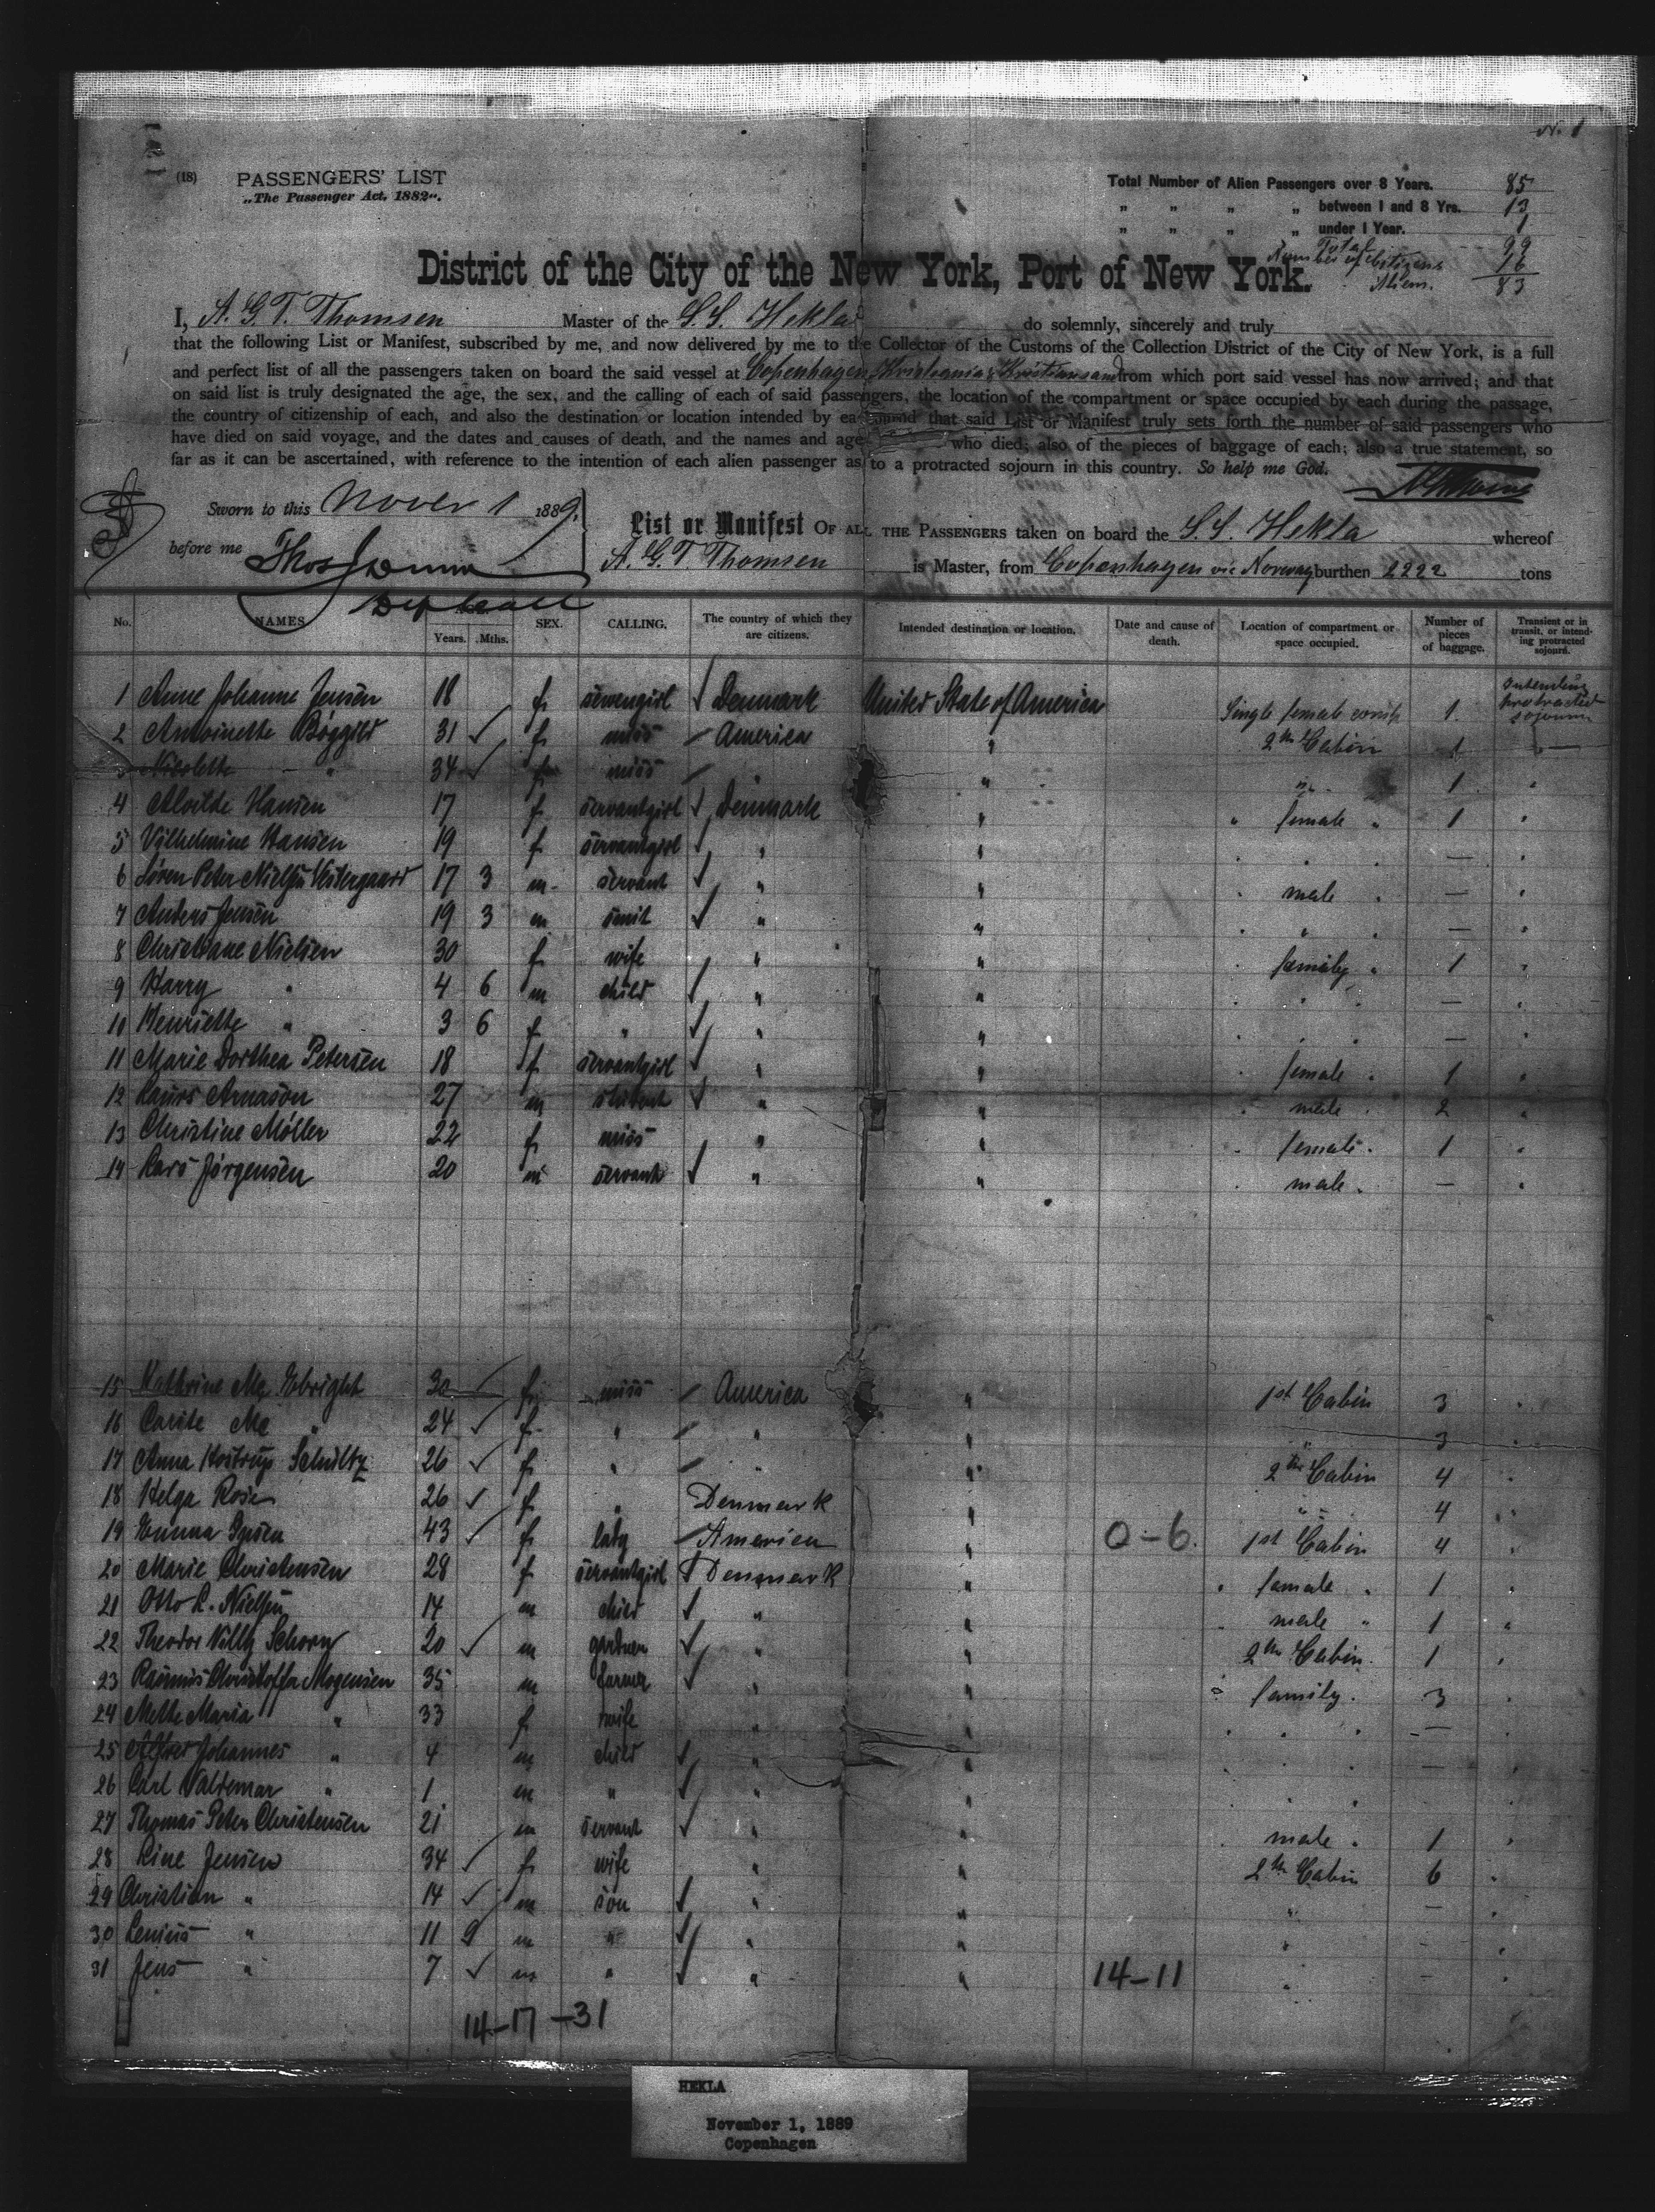 No. 1
(18) PASSENGERS' LIST
„The Passenger Act, 1882“.
Total Number of Alien Passengers over 8 Years. 85
„ „ „ „ between 1 and 8 Yrs. 13
„ „ „ „ under 1 Year. 1
Total 99
Number of Citizens 16
Aliens. 83
District of the City of the New York, Port of New York.
I, A. G. T. Thomsen Master of the S.S. Hekla do solemnly, sincerely and truly
that the following List or Manifest, subscribed by me, and now delivered by me to the Collector of the Customs of the Collection District of the City of New York, is a full
and perfect list of all the passengers taken on board the said vessel at Copenhagen, Kristiania & Kristiansand from which port said vessel has now arrived; and that
on said list is truly designated the age, the sex, and the calling of each of said passengers, the location of the compartment or space occupied by each during the passage,
the country of citizenship of each, and also the destination or location intended by ea and that said List or Manifest truly sets forth the number of said passengers who
have died on said voyage, and the dates and causes of death, and the names and age who died; also of the pieces of baggage of each; also a true statement, so
far as it can be ascertained, with reference to the intention of each alien passenger as to a protracted sojourn in this country. So help me God.
Sworn to this Nover 1 1889.
before me
List or Manifest OF ALL THE PASSENGERS taken on board the S.S. Hekla whereof
A. G. T. Thomsen is Master, from Copenhagen via Norway burthen 2222 tons
No. NAMES Years. Mths. SEX. CALLING. The country of which they are citizens. Intended destination or location. Date and cause of death. Location of compartment or space occupied. Number of pieces of baggage. Transient or in transit, or intending protracted sojourn.
1 Anne Johanne Jensen 18 f. servengirl Denmark United State of America Single female comp. 1. Intending protracted sojourn
2 Antoinette Bøggild 31 f. miss America " 2th Cabin 1 "
3 Nicolette " 34 f. miss " " " 1 "
4 Alvilde Hansen 17 f. servantgirl Denmark " " female " 1 "
5 Vilhelmine Hansen 19 f. servantgirl " " " " " — "
6 Søren Peter Nielsen Vestergaard 17 3 m. servant " " " male " — "
7 Anders Jensen 19 3 m smit " " " " " — "
8 Christiane Nielsen 30 f. wife " " " family " 1 "
9 Harry " 4 6 m child " " " " " — "
10 Henriette " 3 6 f. " " " " " " — "
11 Marie Dorthea Petersen 18 f servantgirl " " " female " 1 "
12 Arnason 27 m student " " " male " 2 "
13 Christine Møller 22 f. miss " " " female " 1 "
14 Lars Jørgensen 20 m servant " " " male " — "
15 Kathrine Mc Ebright 30 f. miss America " 1st Cabin 3 "
16 Mc " 24 f. " " " " 3 "
17 Anna Hostrup Schultz 26 f. " " " 2th Cabin 4 "
18 Helga Rose 26 f. " Denmark " " " 4 "
19 Emma 43 f. lady America " 0-6. 1st Cabin 4 "
20 Marie Christensen 28 f. servantgirl Denmark " " female " 1 "
21 Otto L. Nielsen 14 m child " " " male " 1 "
22 Theodor Villy Schorn 20 m gartner " " 2th Cabin 1 "
23 Rasmus Christoffer Mogensen 35 m farmer " " " family " 3 "
24 Mette Maria " 33 f. wife " " " " " — "
25 Alfred Johannes " 4 m child " " " " " — "
26 Carl Valdemar " 1 m " " " " " "
27 Thomas Peter Christensen 21 m servant " " " male " 1 "
28 Line Jensen 34 f. wife " " 2th Cabin 6 "
29 Christian " 14 m son " " " — "
30 " 11 9 m " " " " — "
31 Jens " 7 m " " " 14-11 " — "
14-17-31
HEKLA
November 1, 1889
Copenhagen